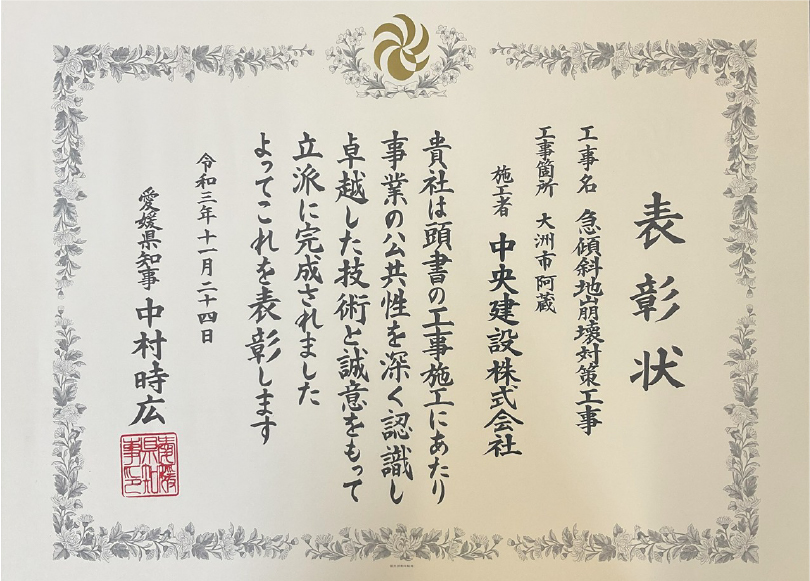 表彰状
工事名 急傾斜地崩壊対策工事
工事箇所 大洲市阿蔵
施工者 中央建設株式会社
貴社は頭書の工事施工にあたり
事業の公共性を深く認識し
卓越した技術と誠意をもって
立派に完成されました
よってこれを表彰します
令和三年十一月二十四日
愛媛県知事 中村時広
愛媛
県知
事印